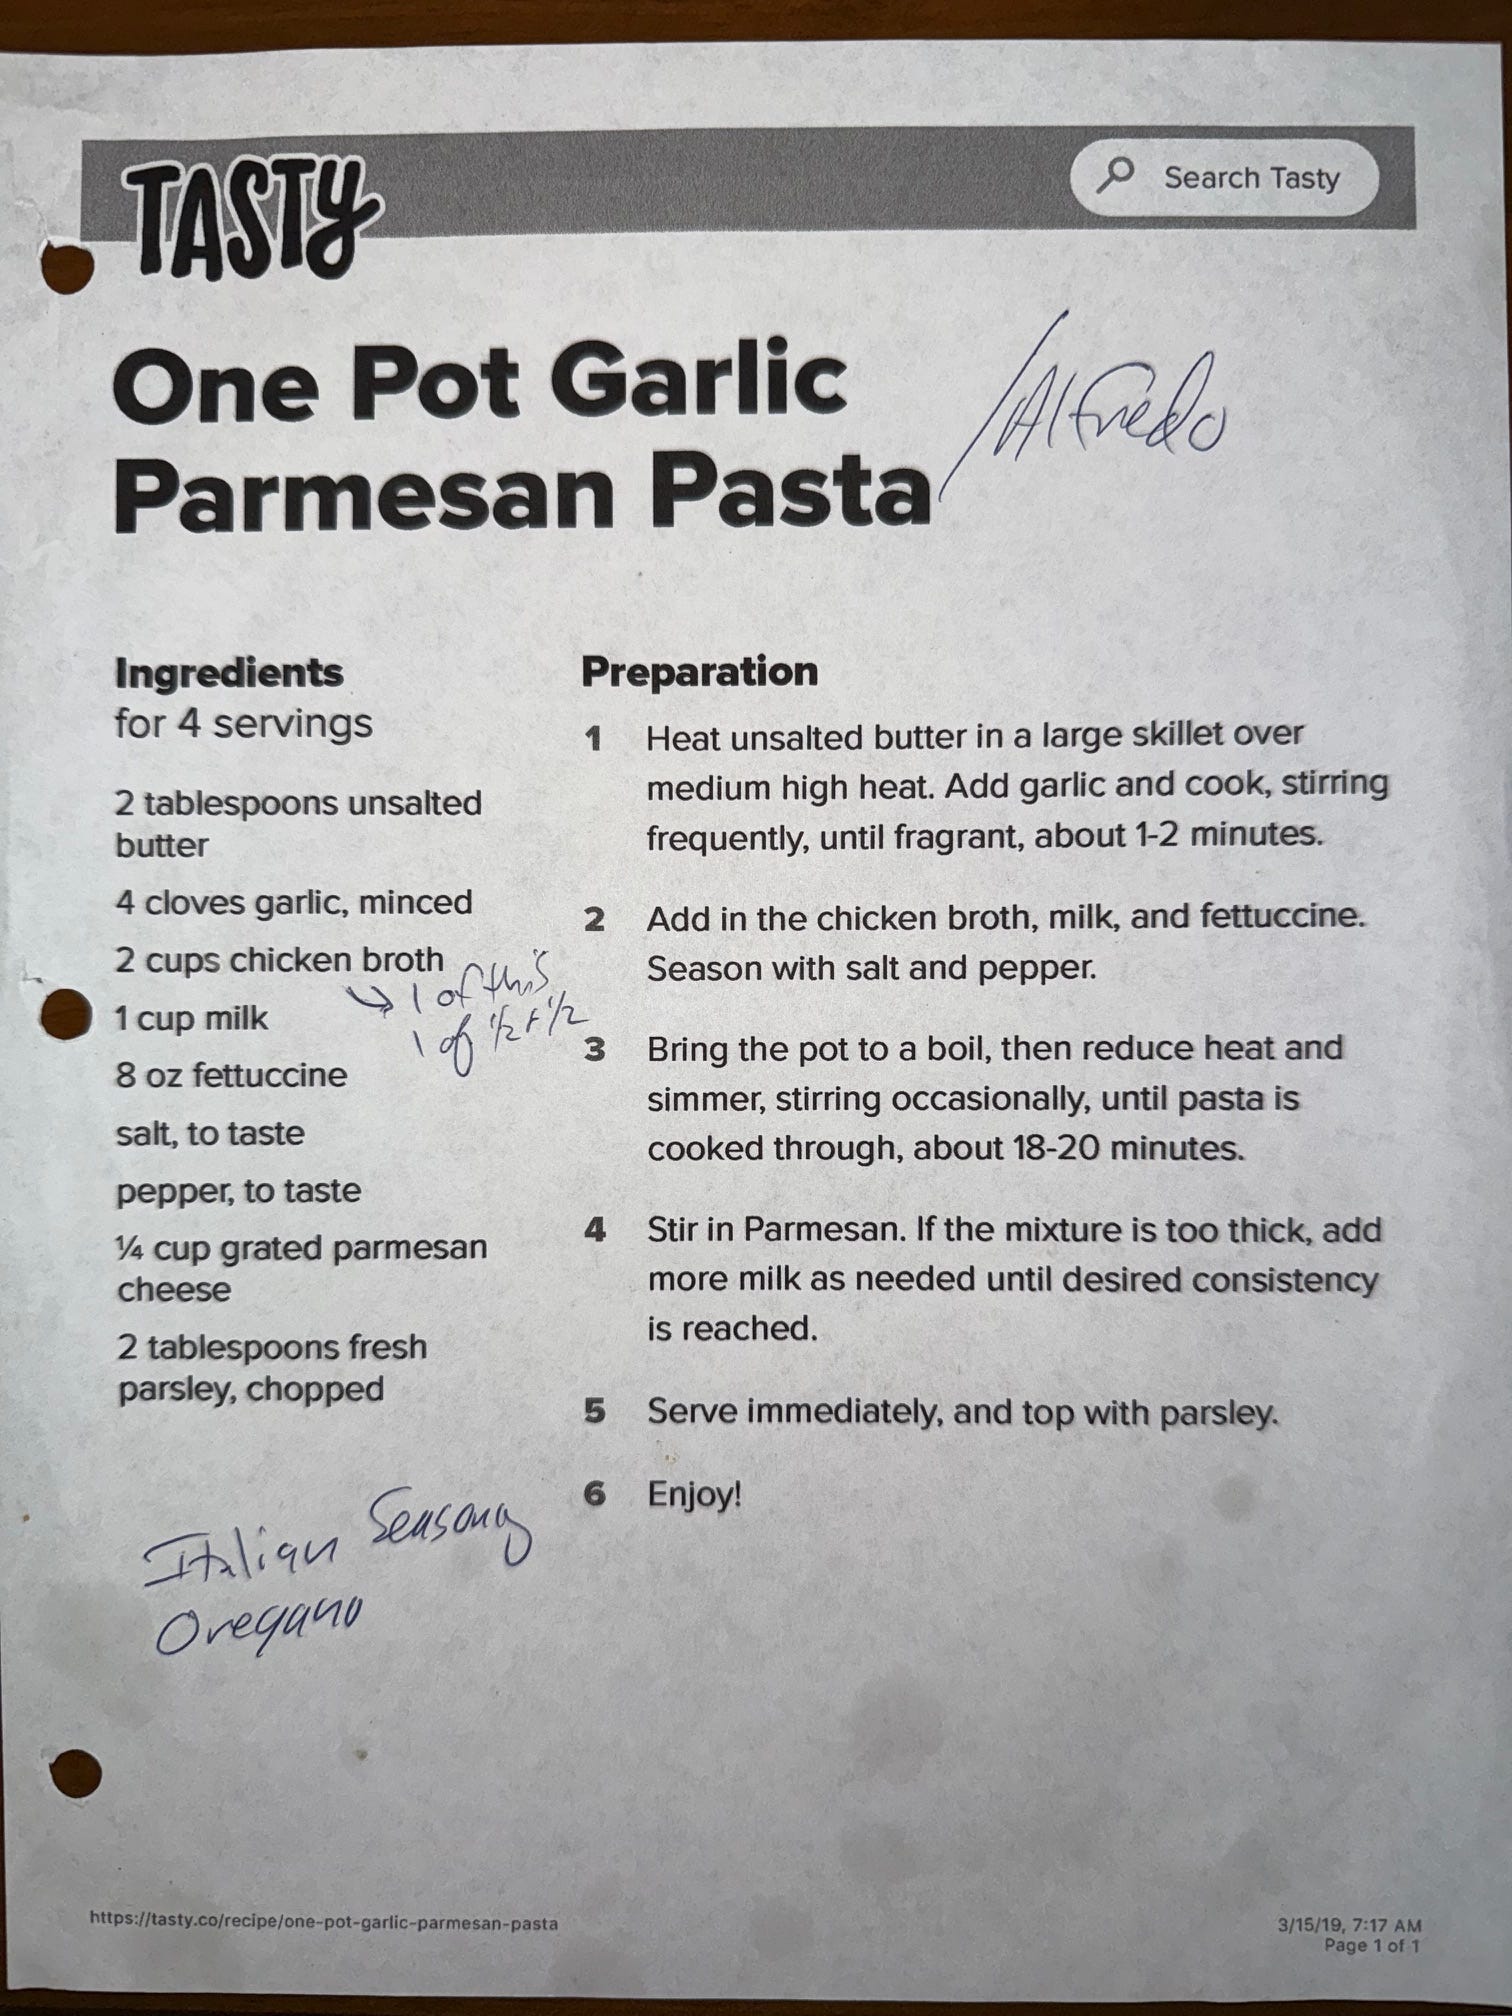 TASTY
Search Tasty
One Pot Garlic
Parmesan Pasta
/Alfredo
Ingredients
for 4 servings
2 tablespoons unsalted
butter
4 cloves garlic, minced
2 cups chicken broth
→ 1 of this
1 of 1/2 + 1/2
1 cup milk
8 oz fettuccine
salt, to taste
pepper, to taste
¼ cup grated parmesan
cheese
2 tablespoons fresh
parsley, chopped
Italian Seasong
Oregano
Preparation
1 Heat unsalted butter in a large skillet over
medium high heat. Add garlic and cook, stirring
frequently, until fragrant, about 1-2 minutes.
2 Add in the chicken broth, milk, and fettuccine.
Season with salt and pepper.
3 Bring the pot to a boil, then reduce heat and
simmer, stirring occasionally, until pasta is
cooked through, about 18-20 minutes.
4 Stir in Parmesan. If the mixture is too thick, add
more milk as needed until desired consistency
is reached.
5 Serve immediately, and top with parsley.
6 Enjoy!
https://tasty.co/recipe/one-pot-garlic-parmesan-pasta
3/15/19, 7:17 AM
Page 1 of 1